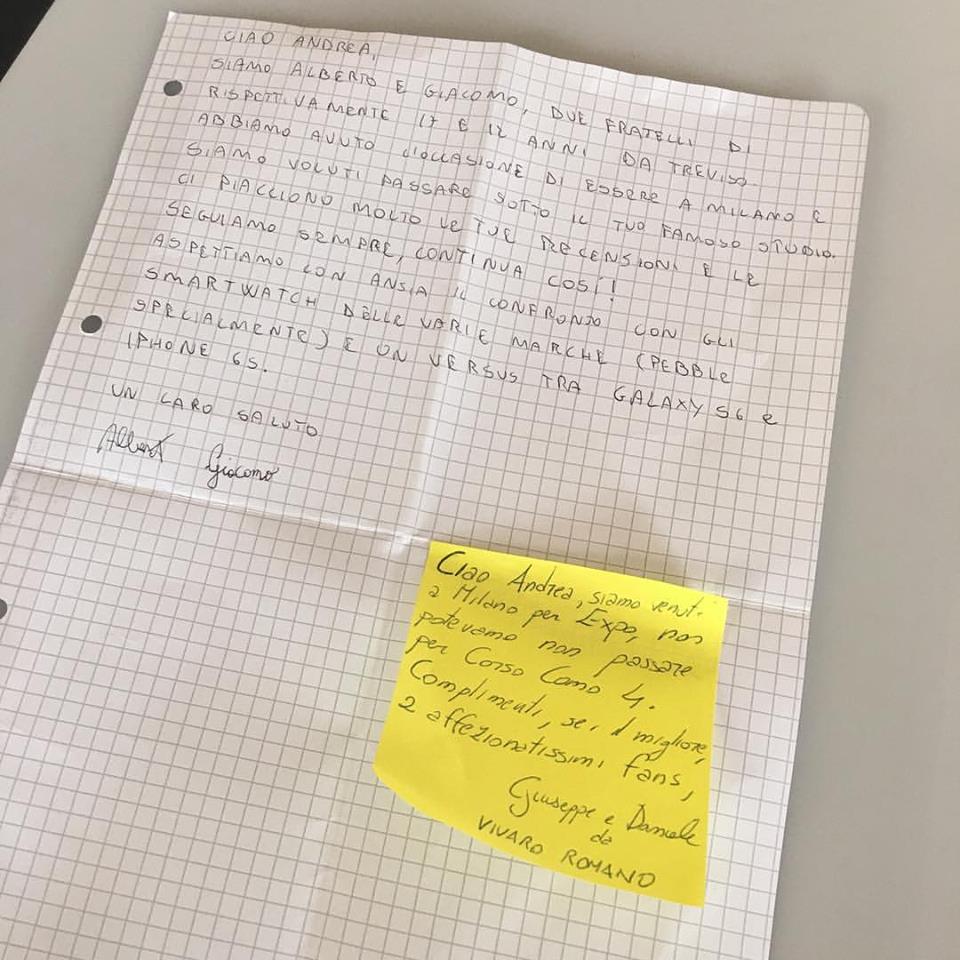 CIAO ANDREA,
SIAMO ALBERTO E GIACOMO, DUE FRATELLI DI
RISPETTIVAMENTE 17 E 12 ANNI DA TREVISO.
ABBIAMO AVUTO L'OCCASIONE DI ESSERE A MILANO E
SIAMO VOLUTI PASSARE SOTTO IL TUO FAMOSO STUDIO.
CI PIACCIONO MOLTO LE TUE RECENSIONI E LE
SEGUIAMO SEMPRE, CONTINUA COSÌ!
ASPETTIAMO CON ANSIA IL CONFRONTO CON GLI
SMARTWATCH DELLE VARIE MARCHE (PEBBLE
SPECIALMENTE) E UN VERSUS TRA GALAXY S6 E
IPHONE 6S.
UN CARO SALUTO
Alberto Giacomo
Ciao Andrea, siamo venuti
a Milano per Expo, non
potevamo non passare
per Corso Como 4.
Complimenti, sei il migliore,
2 affezionatissimi fans,
Giuseppe e Daniele
da
VIVARO ROMANO